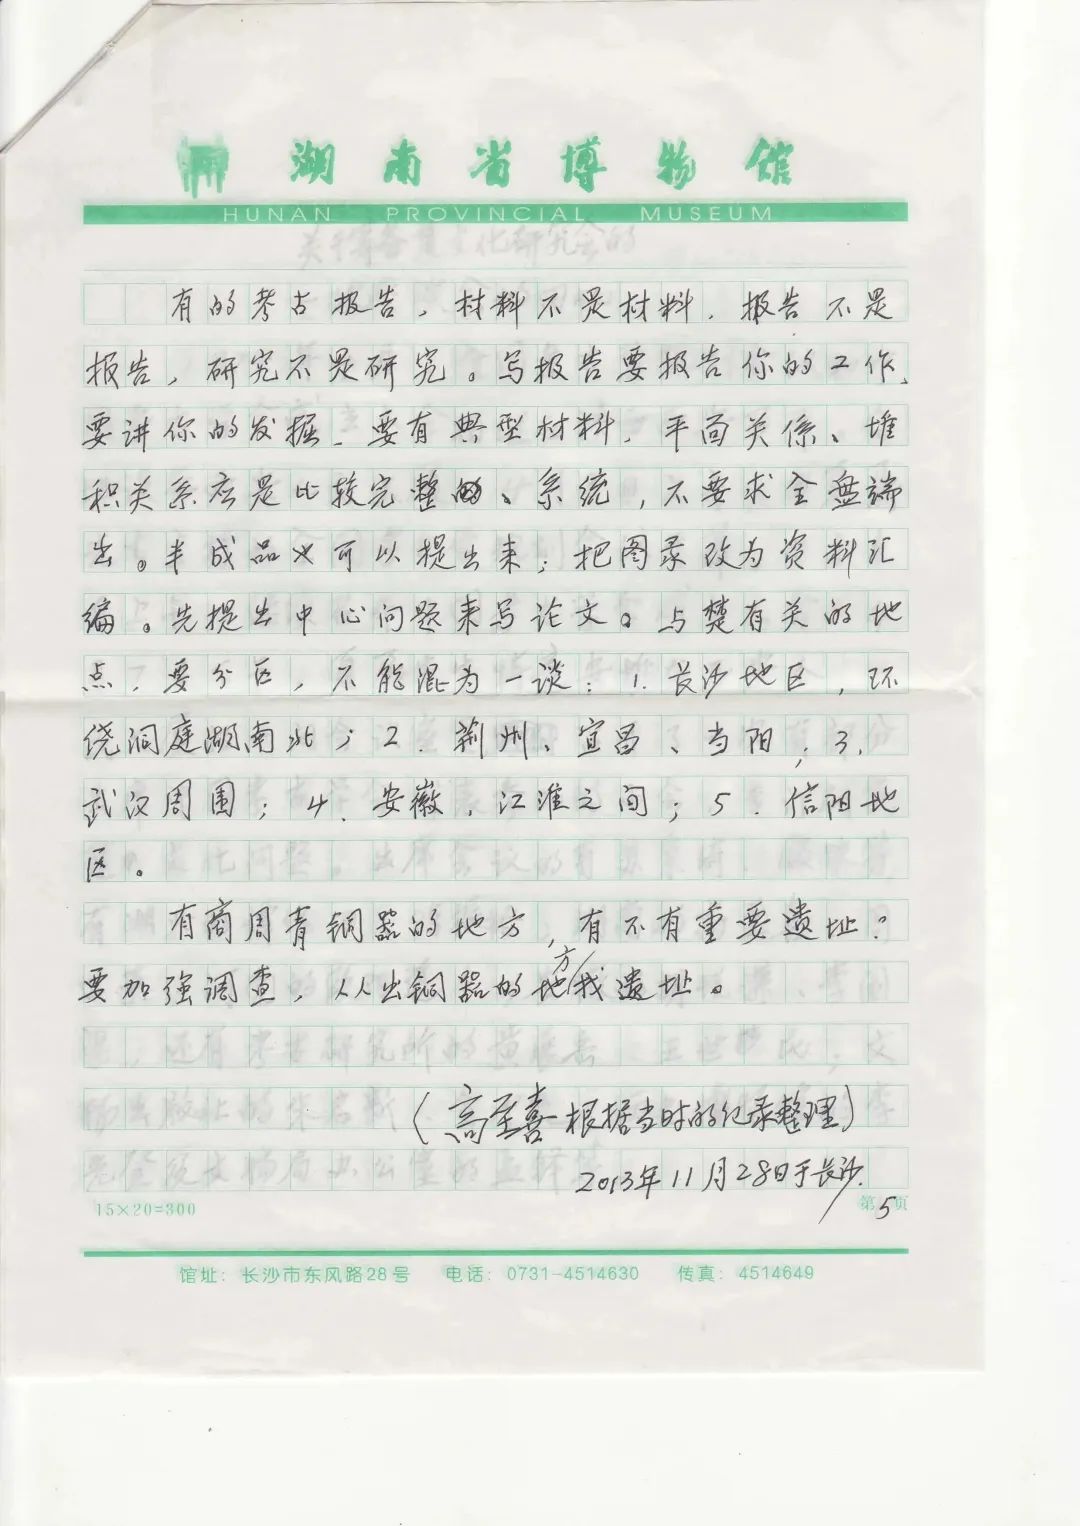 湖南省博物馆
HUNAN PROVINCIAL MUSEUM
有的考古报告，材料不是材料，报告不是
报告，研究不是研究。写报告要报告你的工作，
要讲你的发掘，要有典型材料，平面关係、堆
积关系应是比较完整的、系统，不要求全盘端
出。半成品也可以提出来；把图录改为资料汇
编。先提出中心问题来写论文。与楚有关的地
点，要分区，不能混为一谈：1．长沙地区，环
绕洞庭湖南北；2．荆州、宜昌、当阳；3．
武汉周围；4．安徽，江淮之间；5．信阳地
区。
有商周青铜器的地方，有不有重要遗址？
要加强调查，从出铜器的地方找遗址。
（高至喜根据当时的纪录整理）
2013年11月28日于长沙．
15×20=300 第5页
馆址：长沙市东风路28号 电话：0731-4514630 传真：4514649